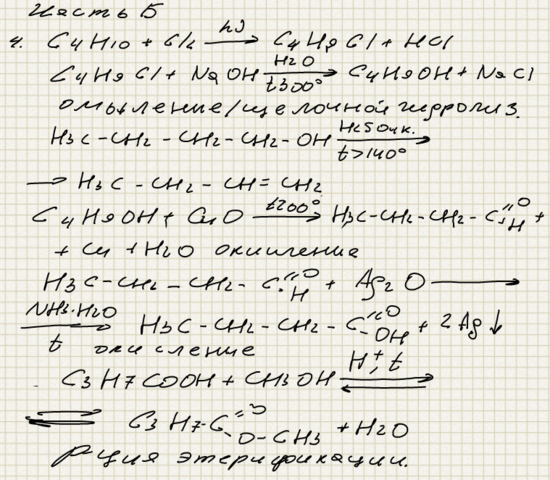 Часть Б
4. C4H10 + Cl2 —hν→ C4H9Cl + HCl
C4H9Cl + NaOH —H2O, t300°→ C4H9OH + NaCl
омыление/щелочной гидролиз.
H3C-CH2-CH2-CH2-OH —H2SO4к., t>140°→
→ H3C-CH2-CH=CH2
C4H9OH + CuO —t200°→ H3C-CH2-CH2-C(=O)H +
+ Cu + H2O окисление
H3C-CH2-CH2-C(=O)H + Ag2O →
—NH3·H2O, t→ H3C-CH2-CH2-C(=O)OH + 2Ag↓
окисление
C3H7COOH + CH3OH ⇌ H+, t
⇌ C3H7-C(=O)O-CH3 + H2O
рция этерификации.